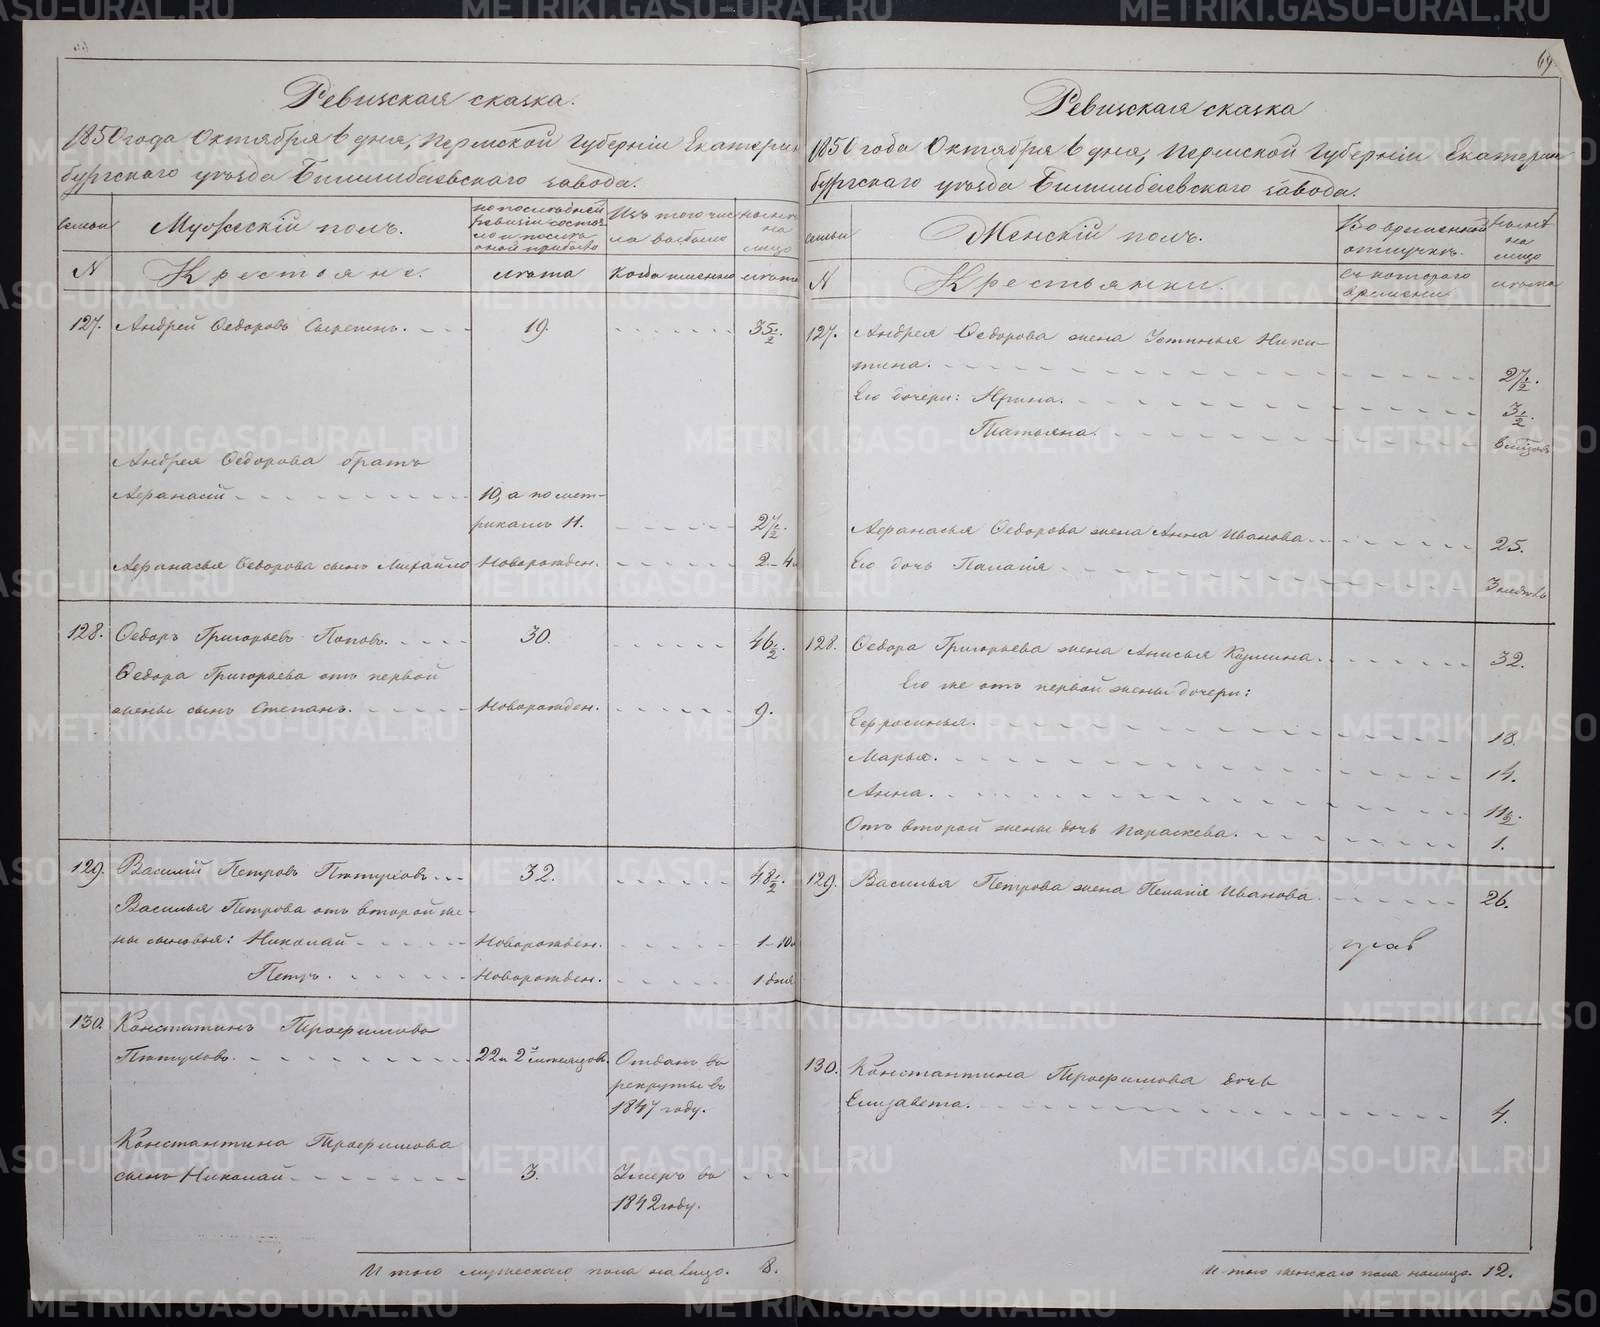 69
Ревизская сказка.
1850 года Октября 6 дня, Пермской Губерніи Екатерин
бургскаго уѣзда Билимбаевскаго завода.
семьи
Мужескій полъ.
по послѣдней ревизіи состояло и послѣ оной прибыло
Изъ того числа выбыло
нынѣ на лицо
N
Крестьяне.
лѣта
Когда именно
лѣта
127. Андрей Ѳедоровъ Сыропенъ. 19. 35½.
Андрея Ѳедорова братъ
Аѳанасій 10, а по мет-
рикамъ 11. 27½.
Аѳанасья Ѳедорова сынъ Михайло Новорожден. 2-4м
128. Ѳедоръ Григорьевъ Поповъ. 30. 46½.
Ѳедора Григорьева отъ первой
жены сынъ Степанъ. Новорожден. 9.
129. Василій Петровъ Пѣтуховъ 32. 48½
Василья Петрова отъ второй же-
ны сыновья: Николай Новорожден. 1-10м
Петръ. Новорожден. 1 дня
130. Констатинъ Троѳимовъ
Пѣтуховъ. 22 и 2 мѣсяцовъ. Отданъ въ
рекруты въ
1847 году.
Константина Троѳимова
сынъ Николай 3. Умеръ въ
1842 году.
И того мужескаго пола на лицо. 8.
Ревизская сказка
1850 года Октября 6 дня, Пермской Губерніи Екатерин
бургскаго уѣзда Билимбаевскаго завода.
семьи
Женскій полъ.
Во временной отлучкѣ.
Нынѣ на лицо
N
Крестьянки.
съ котораго времени
лѣта
127. Андрея Ѳедорова жена Устинья Ники-
тина. 27½.
Его дочери: Ирина. 3½.
Татьяна.
Аѳанасья Ѳедорова жена Анна Иванова 25.
Его дочь Палагія 3 недѣль
128. Ѳедора Григорьева жена Анисья Кузмина. 32.
Его же отъ первой жены дочери:
Евросинья. 18.
Марья. 14.
Анна. 11½.
Отъ второй жены дочь Параскева. 1.
129. Василья Петрова жена Пелагія Иванова 26.
130. Константина Троѳимова дочь
Елизавета. 4.
И того женскаго пола налицо. 12.
METRIKI.GASO-URAL.RU